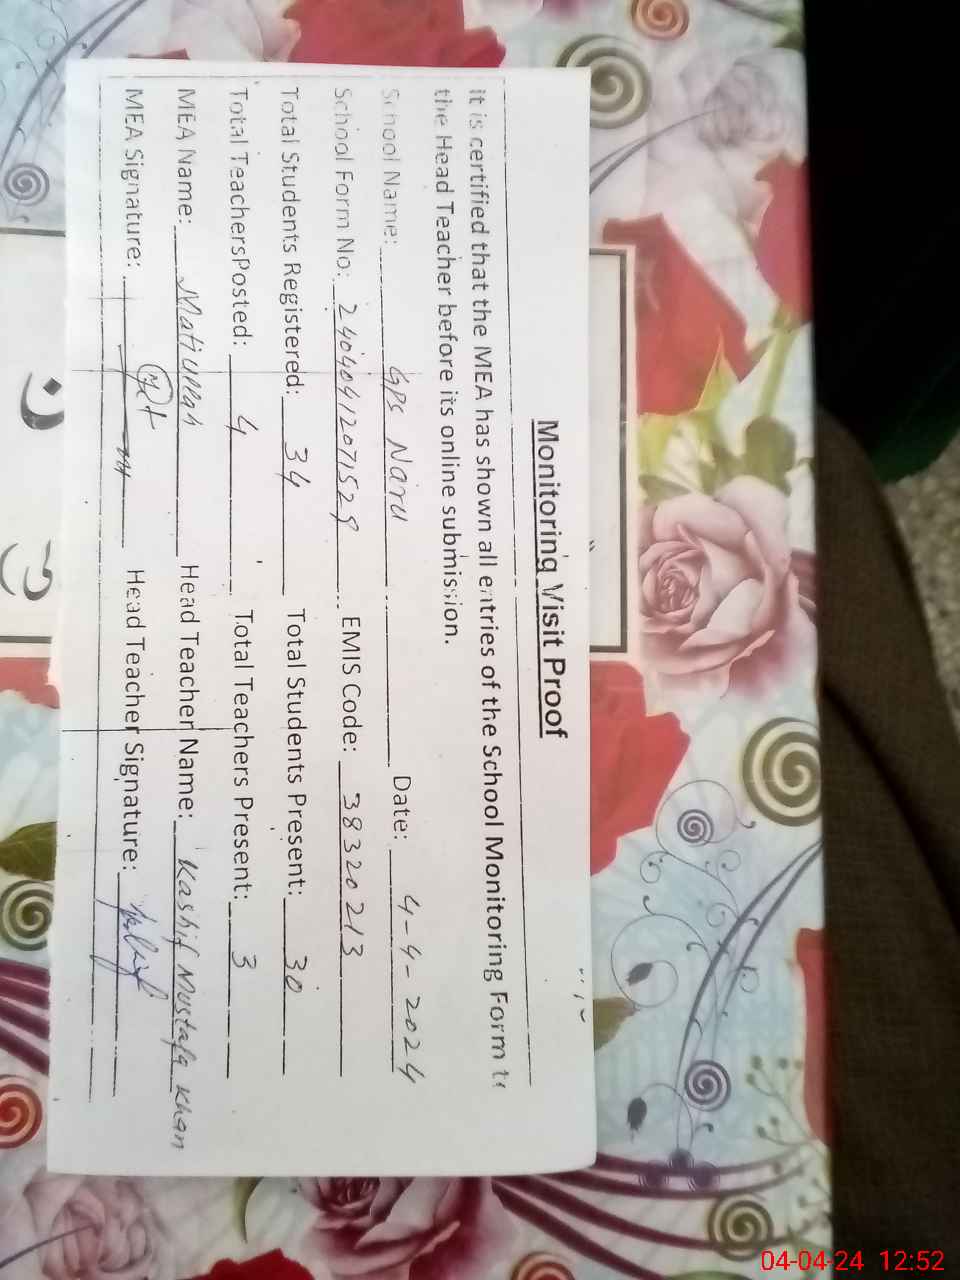 Monitoring Visit Proof
It is certified that the MEA has shown all entries of the School Monitoring Form to
the Head Teacher before its online submission.
School Name: GPS Naru Date: 4-4-2024
School Form No: 24040412071529 EMIS Code: 38320213
Total Students Registered: 34 Total Students Present: 30
Total TeachersPosted: 4 Total Teachers Present: 3
MEA Name: Matiullah Head Teacher Name: Kashif Mustafa Khan
MEA Signature: Head Teacher Signature:
04-04-24 12:52